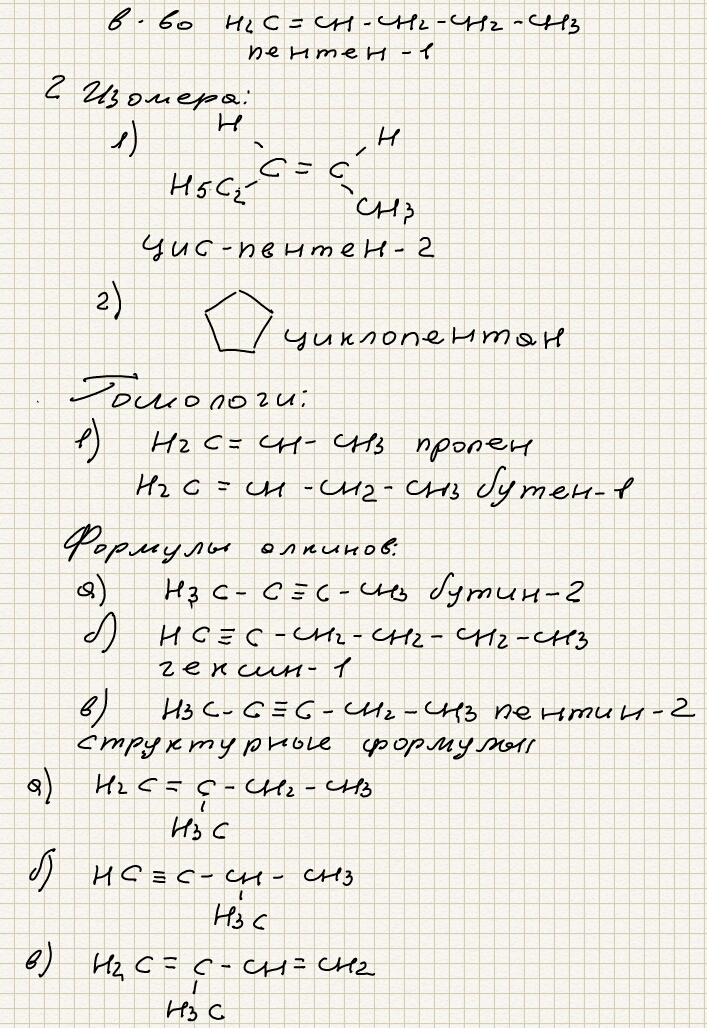 в-во H2C=CH-CH2-CH2-CH3
пентен-1
2 Изомера:
1)
H H
C=C
H5C2 CH3
цис-пентен-2
2) циклопентан
Гомологи:
1) H2C=CH-CH3 пропен
H2C=CH-CH2-CH3 бутен-1
Формулы алкинов:
а) H3C-C≡C-CH3 бутин-2
б) HC≡C-CH2-CH2-CH2-CH3
гексин-1
в) H3C-C≡C-CH2-CH3 пентин-2
структурные формулы
а) H2C=C-CH2-CH3
H3C
б) HC≡C-CH-CH3
H3C
в) H2C=C-CH=CH2
H3C